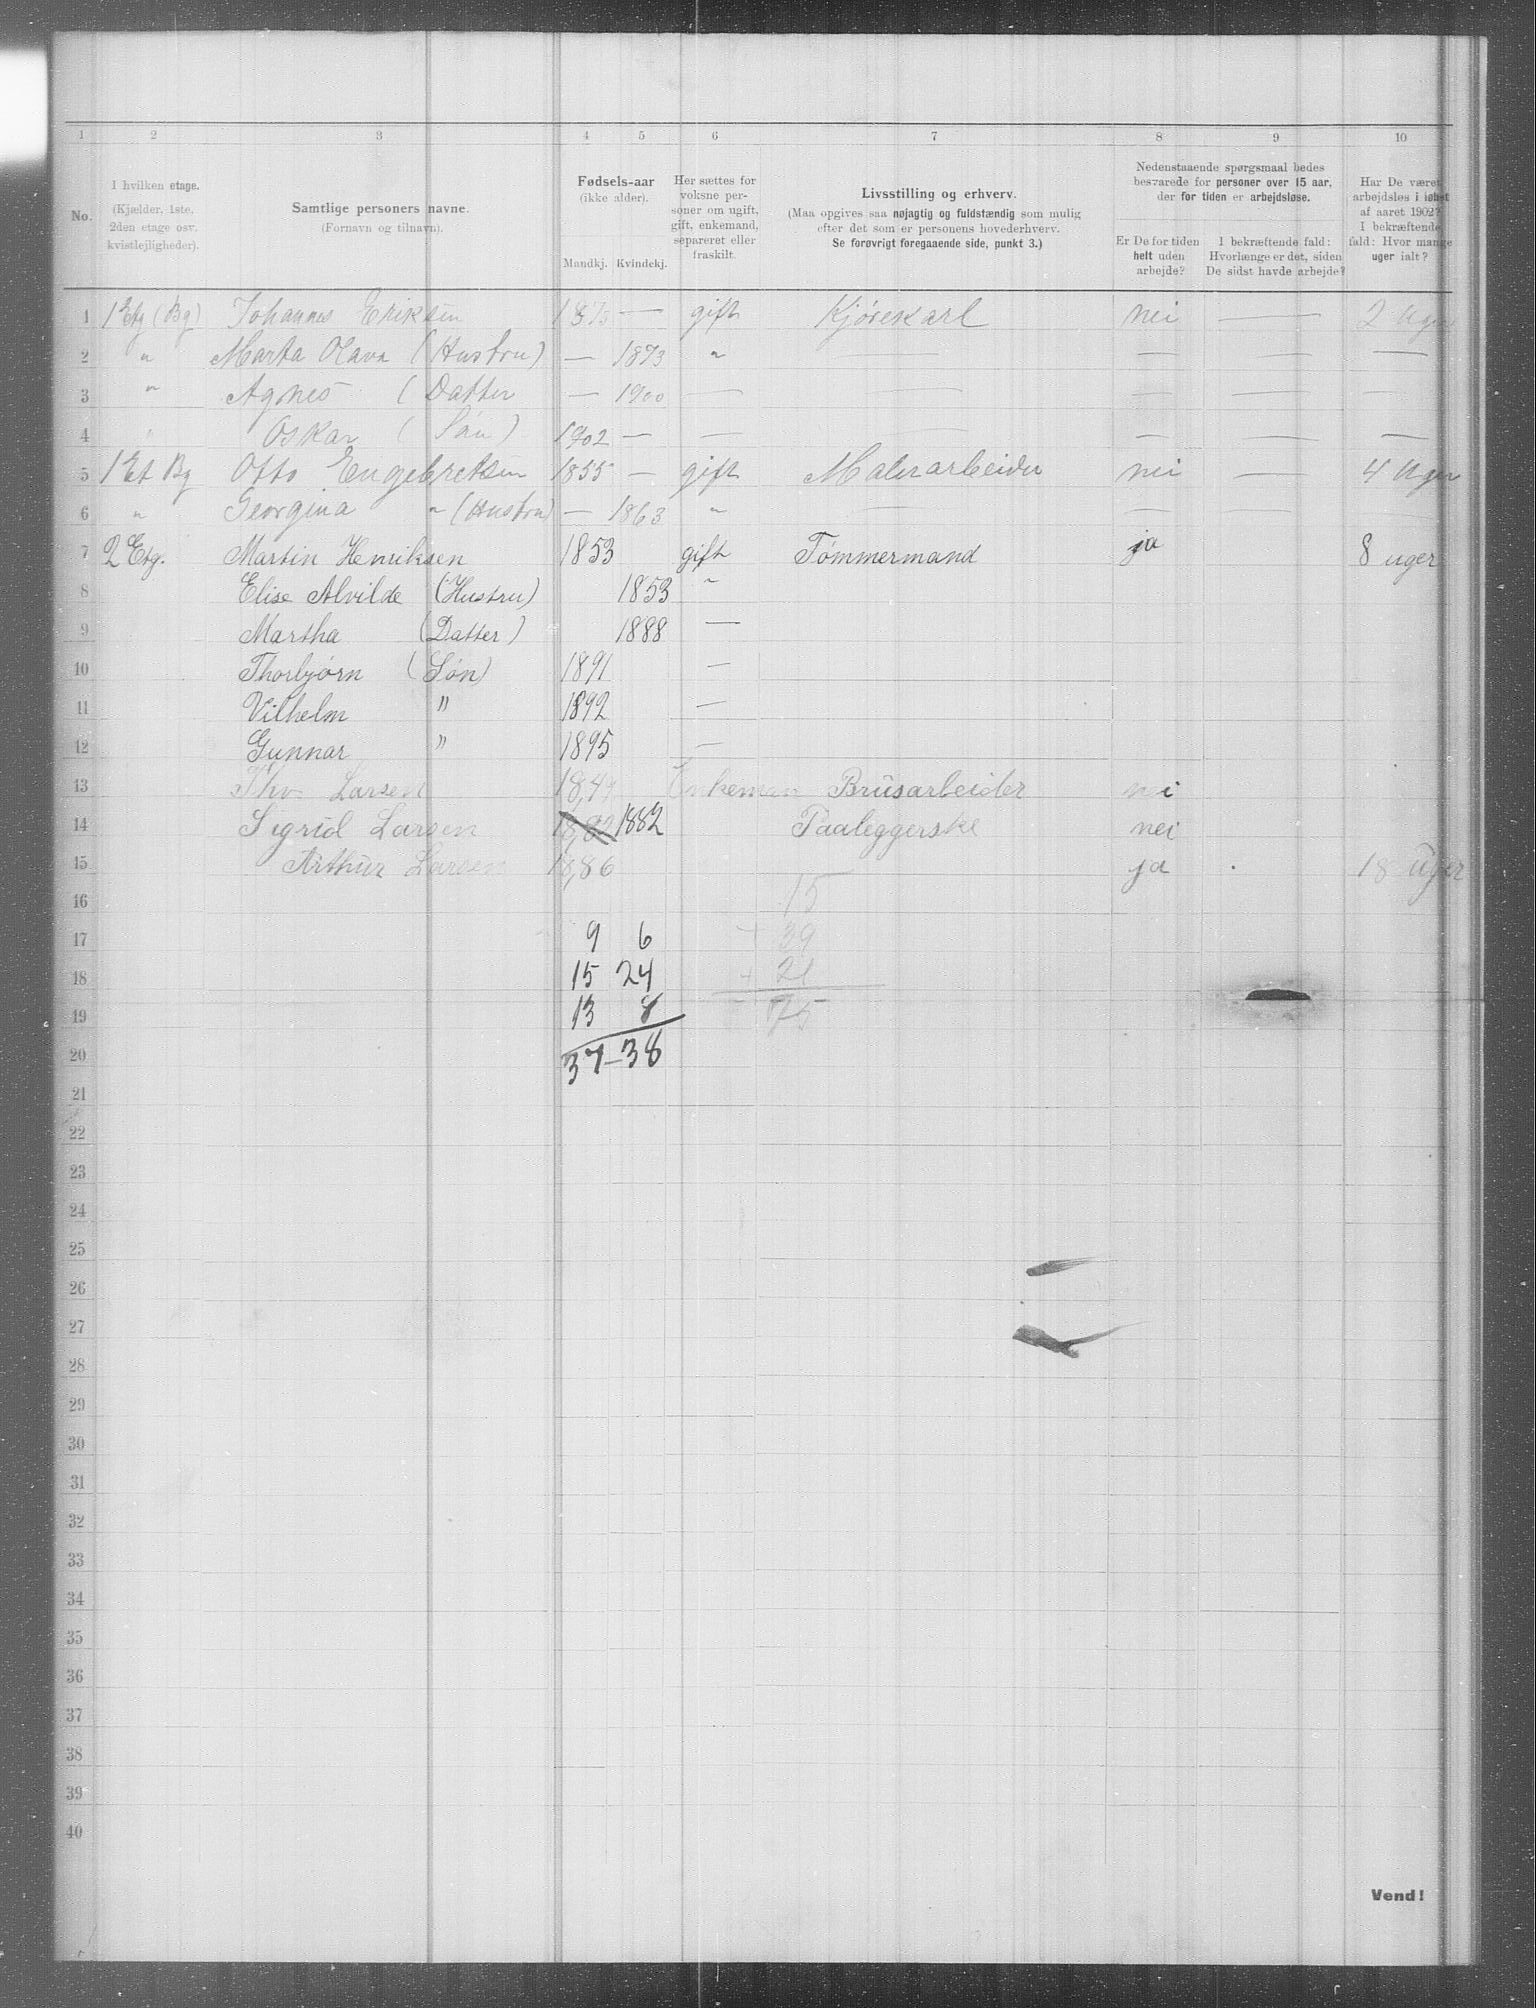 1 2 3 4 5 6 7 8 9 10
No.
I hvilken etage.
(Kjælder, 1ste, 2den etage osv. kvistlejligheder).
Samtlige personers navne.
(Fornavn og tilnavn).
Fødsels-aar
(ikke alder).
Mandkj. Kvindekj.
Her sættes for voksne personer om ugift, gift, enkemand, separeret eller fraskilt.
Livsstilling og erhverv.
(Maa opgives saa nøjagtig og fuldstændig som mulig efter det som er personens hovederhverv.
Se forøvrigt foregaaende side, punkt 3.)
Nedenstaaende spørgsmaal bedes besvarede for personer over 15 aar, der for tiden er arbejdsløse.
Er De for tiden helt uden arbejde?
I bekræftende fald: Hvorlænge er det, siden De sidst havde arbejde?
Har De været arbejdsløs i løbet af aaret 1902? I bekræftende fald: Hvor mange uger ialt?
1 1 Etg (Bg) Johannes Eriksen 1873 — gift Kjørekarl nei — 2 Uger
2 " Marta Olava (Hustru) — 1873 " — — — —
3 " Agnes (Datter — 1900 — — — — —
4 " Oskar (Søn) 1902 — — — — — —
5 1 Et Bg Otto Engebretsen 1855 — gift Malerarbeider nei — 4 Uger
6 " Georgina " (Hustru) — 1863 " — — — —
7 2 Etg. Martin Henriksen 1853 gift Tømmermand ja 8 uger
8 Elise Alvilde (Hustru) 1853 "
9 Martha (Datter) 1888 —
10 Thorbjørn (Søn) 1891 —
11 Vilhelm " 1892 —
12 Gunnar " 1895 —
13 Thv. Larsen Enkeman Brusarbeider nei
14 Sigrid Larsen 18,82 1882 Paaleggerske nei
15 Arthur Larsen 18,86 ja 18 Uger
16 15
17 9 6 + 39
18 15 24 + 21
19 13 8 75
20 37–38
21
22
23
24
25
26
27
28
29
30
31
32
33
34
35
36
37
38
39
40
Vend!